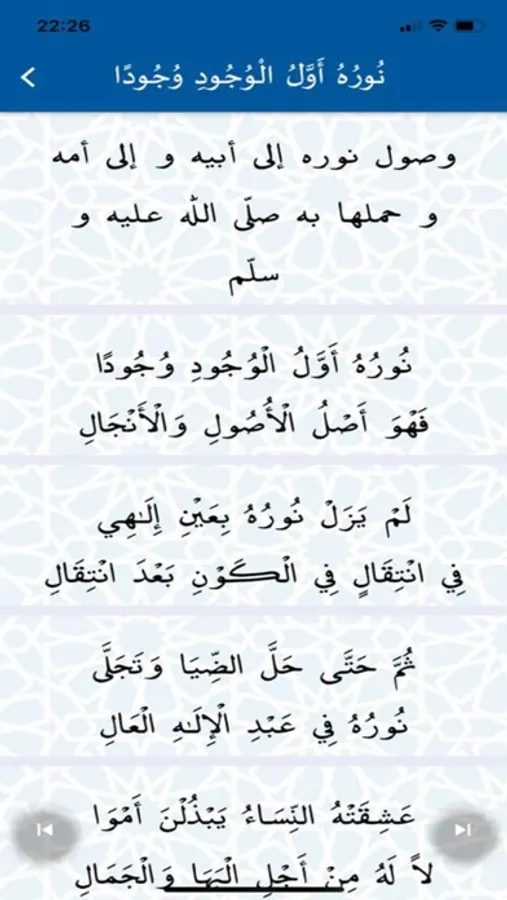 22:26
نُورُهُ أَوَّلُ الْوُجُودِ وُجُودًا
وصول نوره إلى أبيه و إلى أمه
و حملها به صلّى الله عليه و
سلّم
نُورُهُ أَوَّلُ الْوُجُودِ وُجُودًا
فَهْوَ أَصْلُ الْأُصُولِ وَالْأَنْجَالِ
لَمْ يَزَلْ نُورُهُ بِعَيْنِ إِلَـٰهِي
فِي انْتِقَالٍ فِي الْكَوْنِ بَعْدَ انْتِقَالِ
ثُمَّ حَتَّى حَلَّ الضِّيَا وَتَجَلَّى
نُورُهُ فِي عَبْدِ الْإِلَـٰهِ الْعَالِ
عَشِقَتْهُ النِّسَاءُ يَبْذُلْنَ أَمْوَا
لاً لَهُ مِنْ أَجْلِ الْبَهَا وَالْجَمَالِ